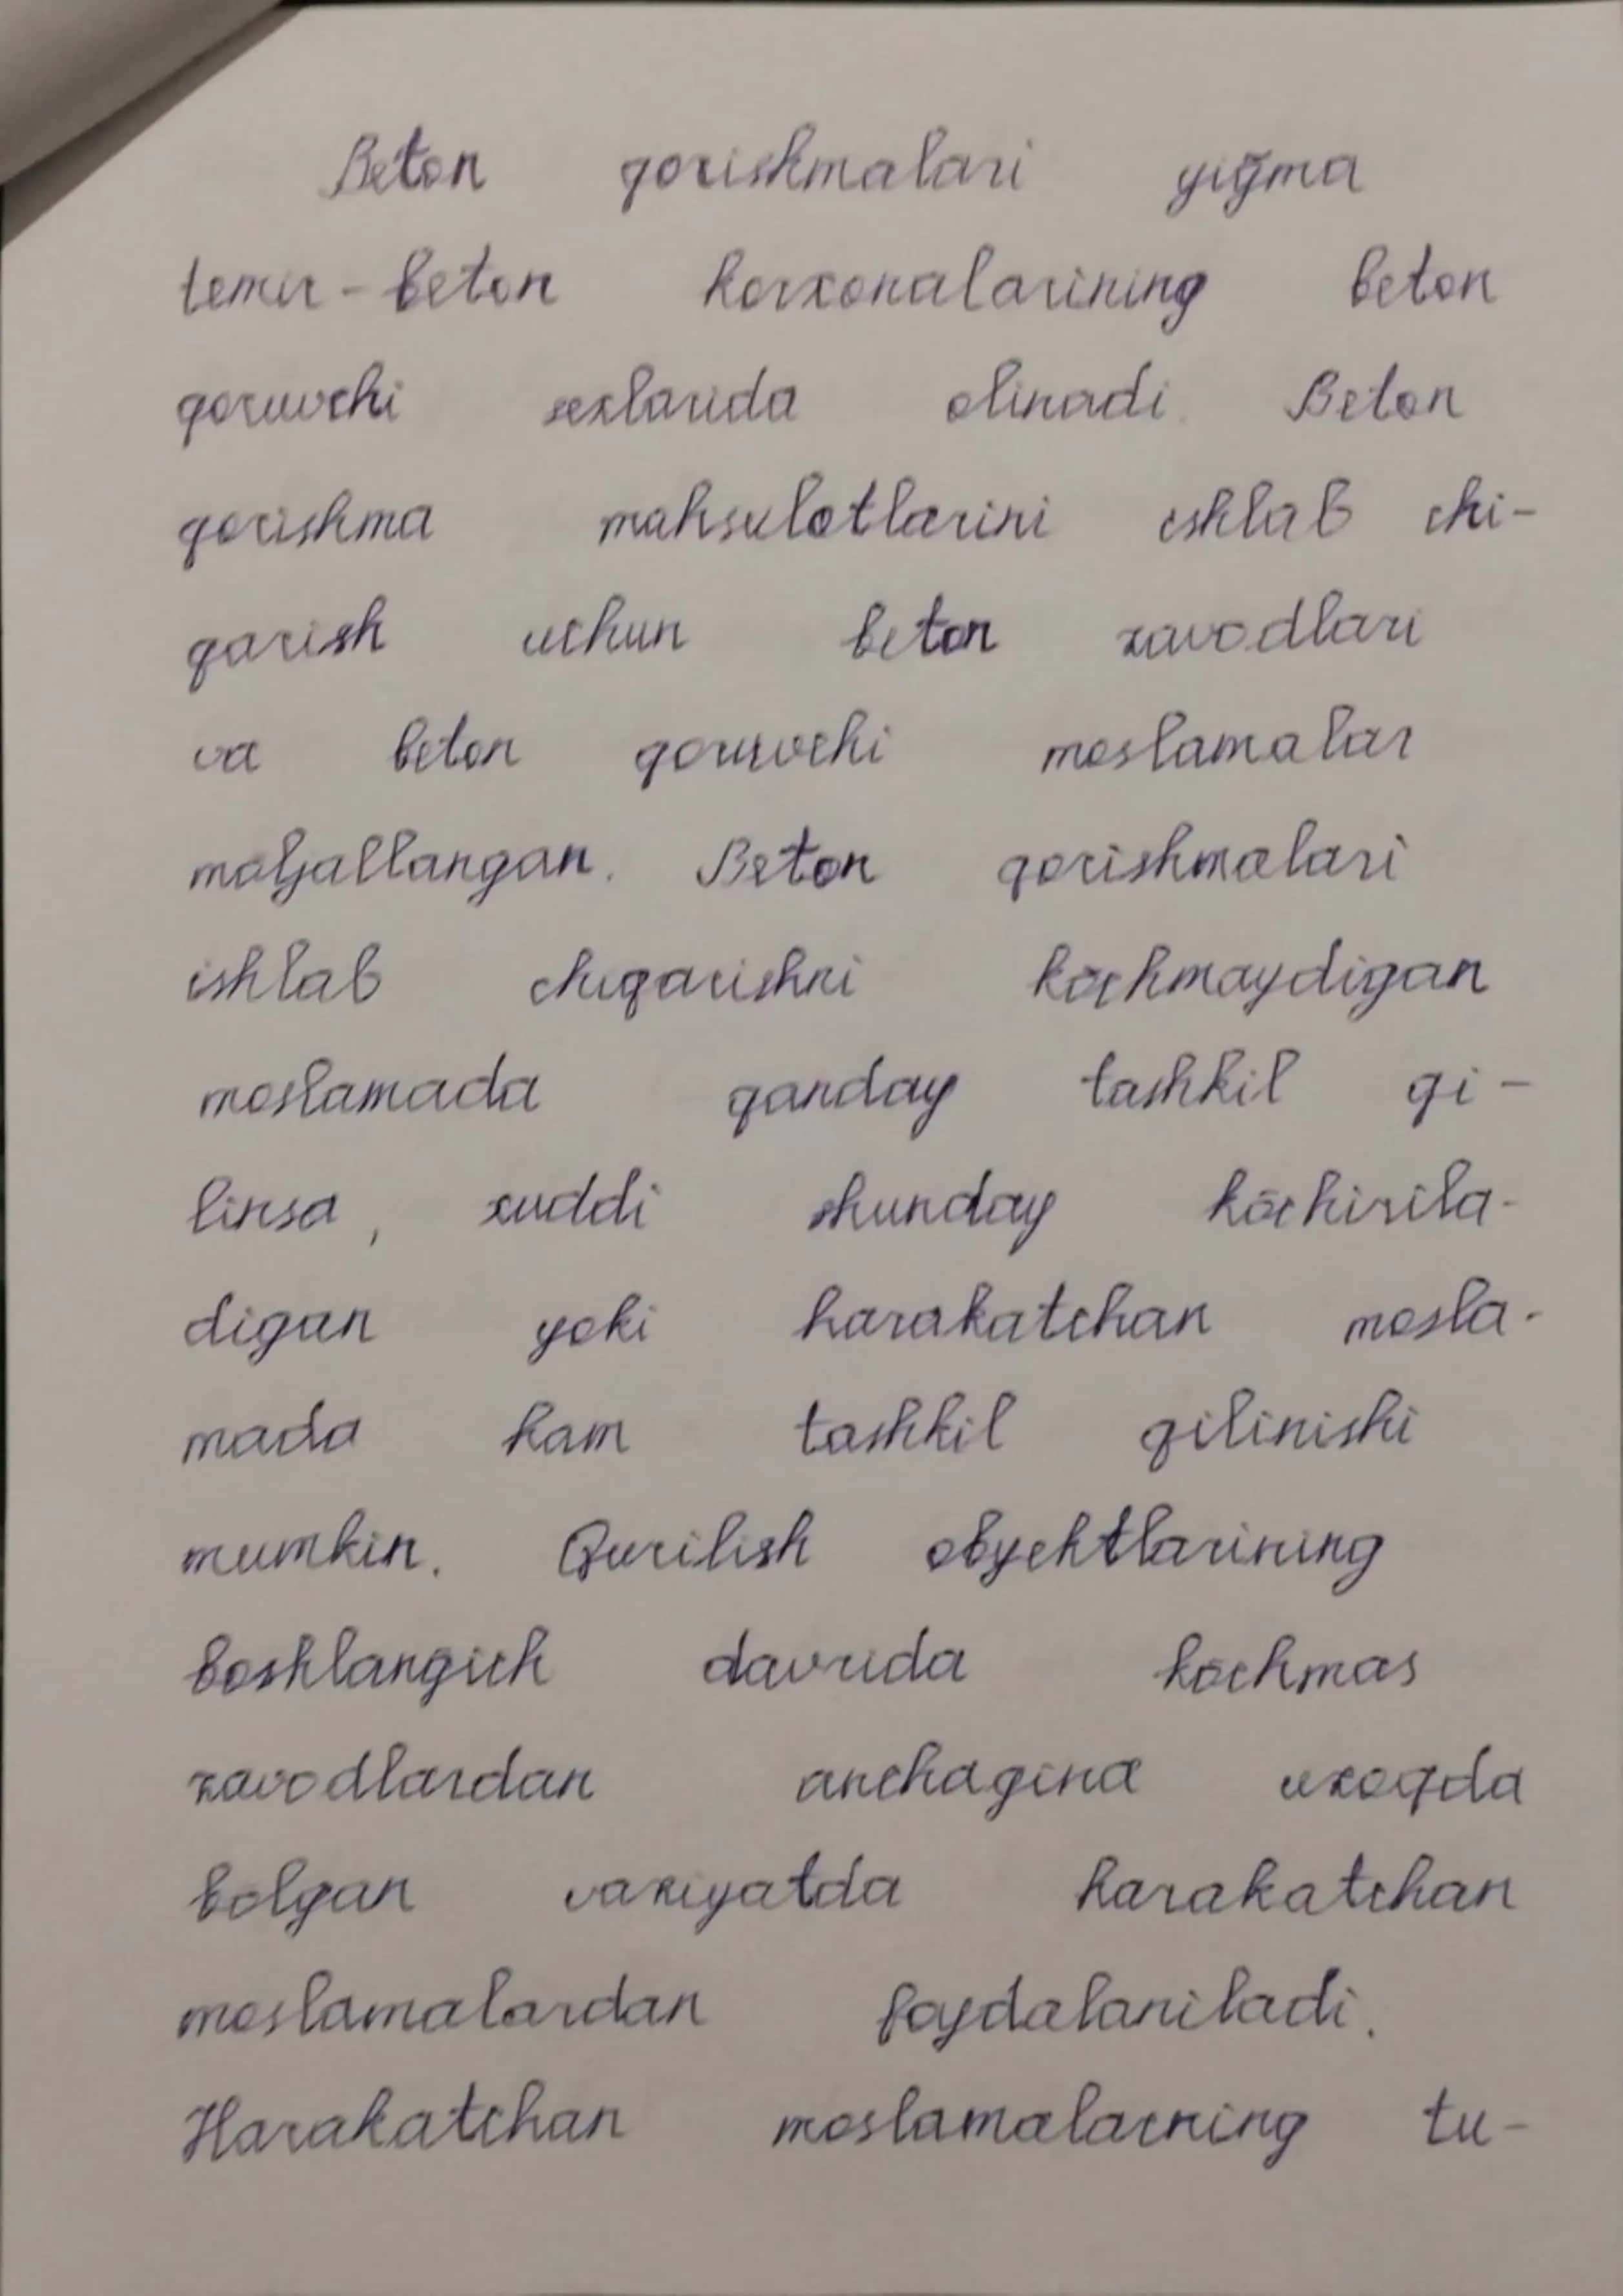 Beton qorishmalari yiğma
temir-beton korxonalarining beton
qoruvchi sexlarida olinadi. Beton
qorishma mahsulotlarini ishlab chi-
qarish uchun beton zavodlari
va beton qoruvchi moslamalar
mōljallangan. Beton qorishmalari
ishlab chiqarishni kōchmaydigan
moslamada qanday tashkil qi-
linsa, xuddi shunday kōchirila-
digan yoki harakatchan mosla-
mada ham tashkil qilinishi
mumkin. Qurilish obyektlarining
boshlanğich davrida kōchmas
zavodlardan anchagina uzoqda
bōlgan vaziyatda harakatchan
moslamalardan foydalaniladi.
Harakatchan moslamalarning tu-